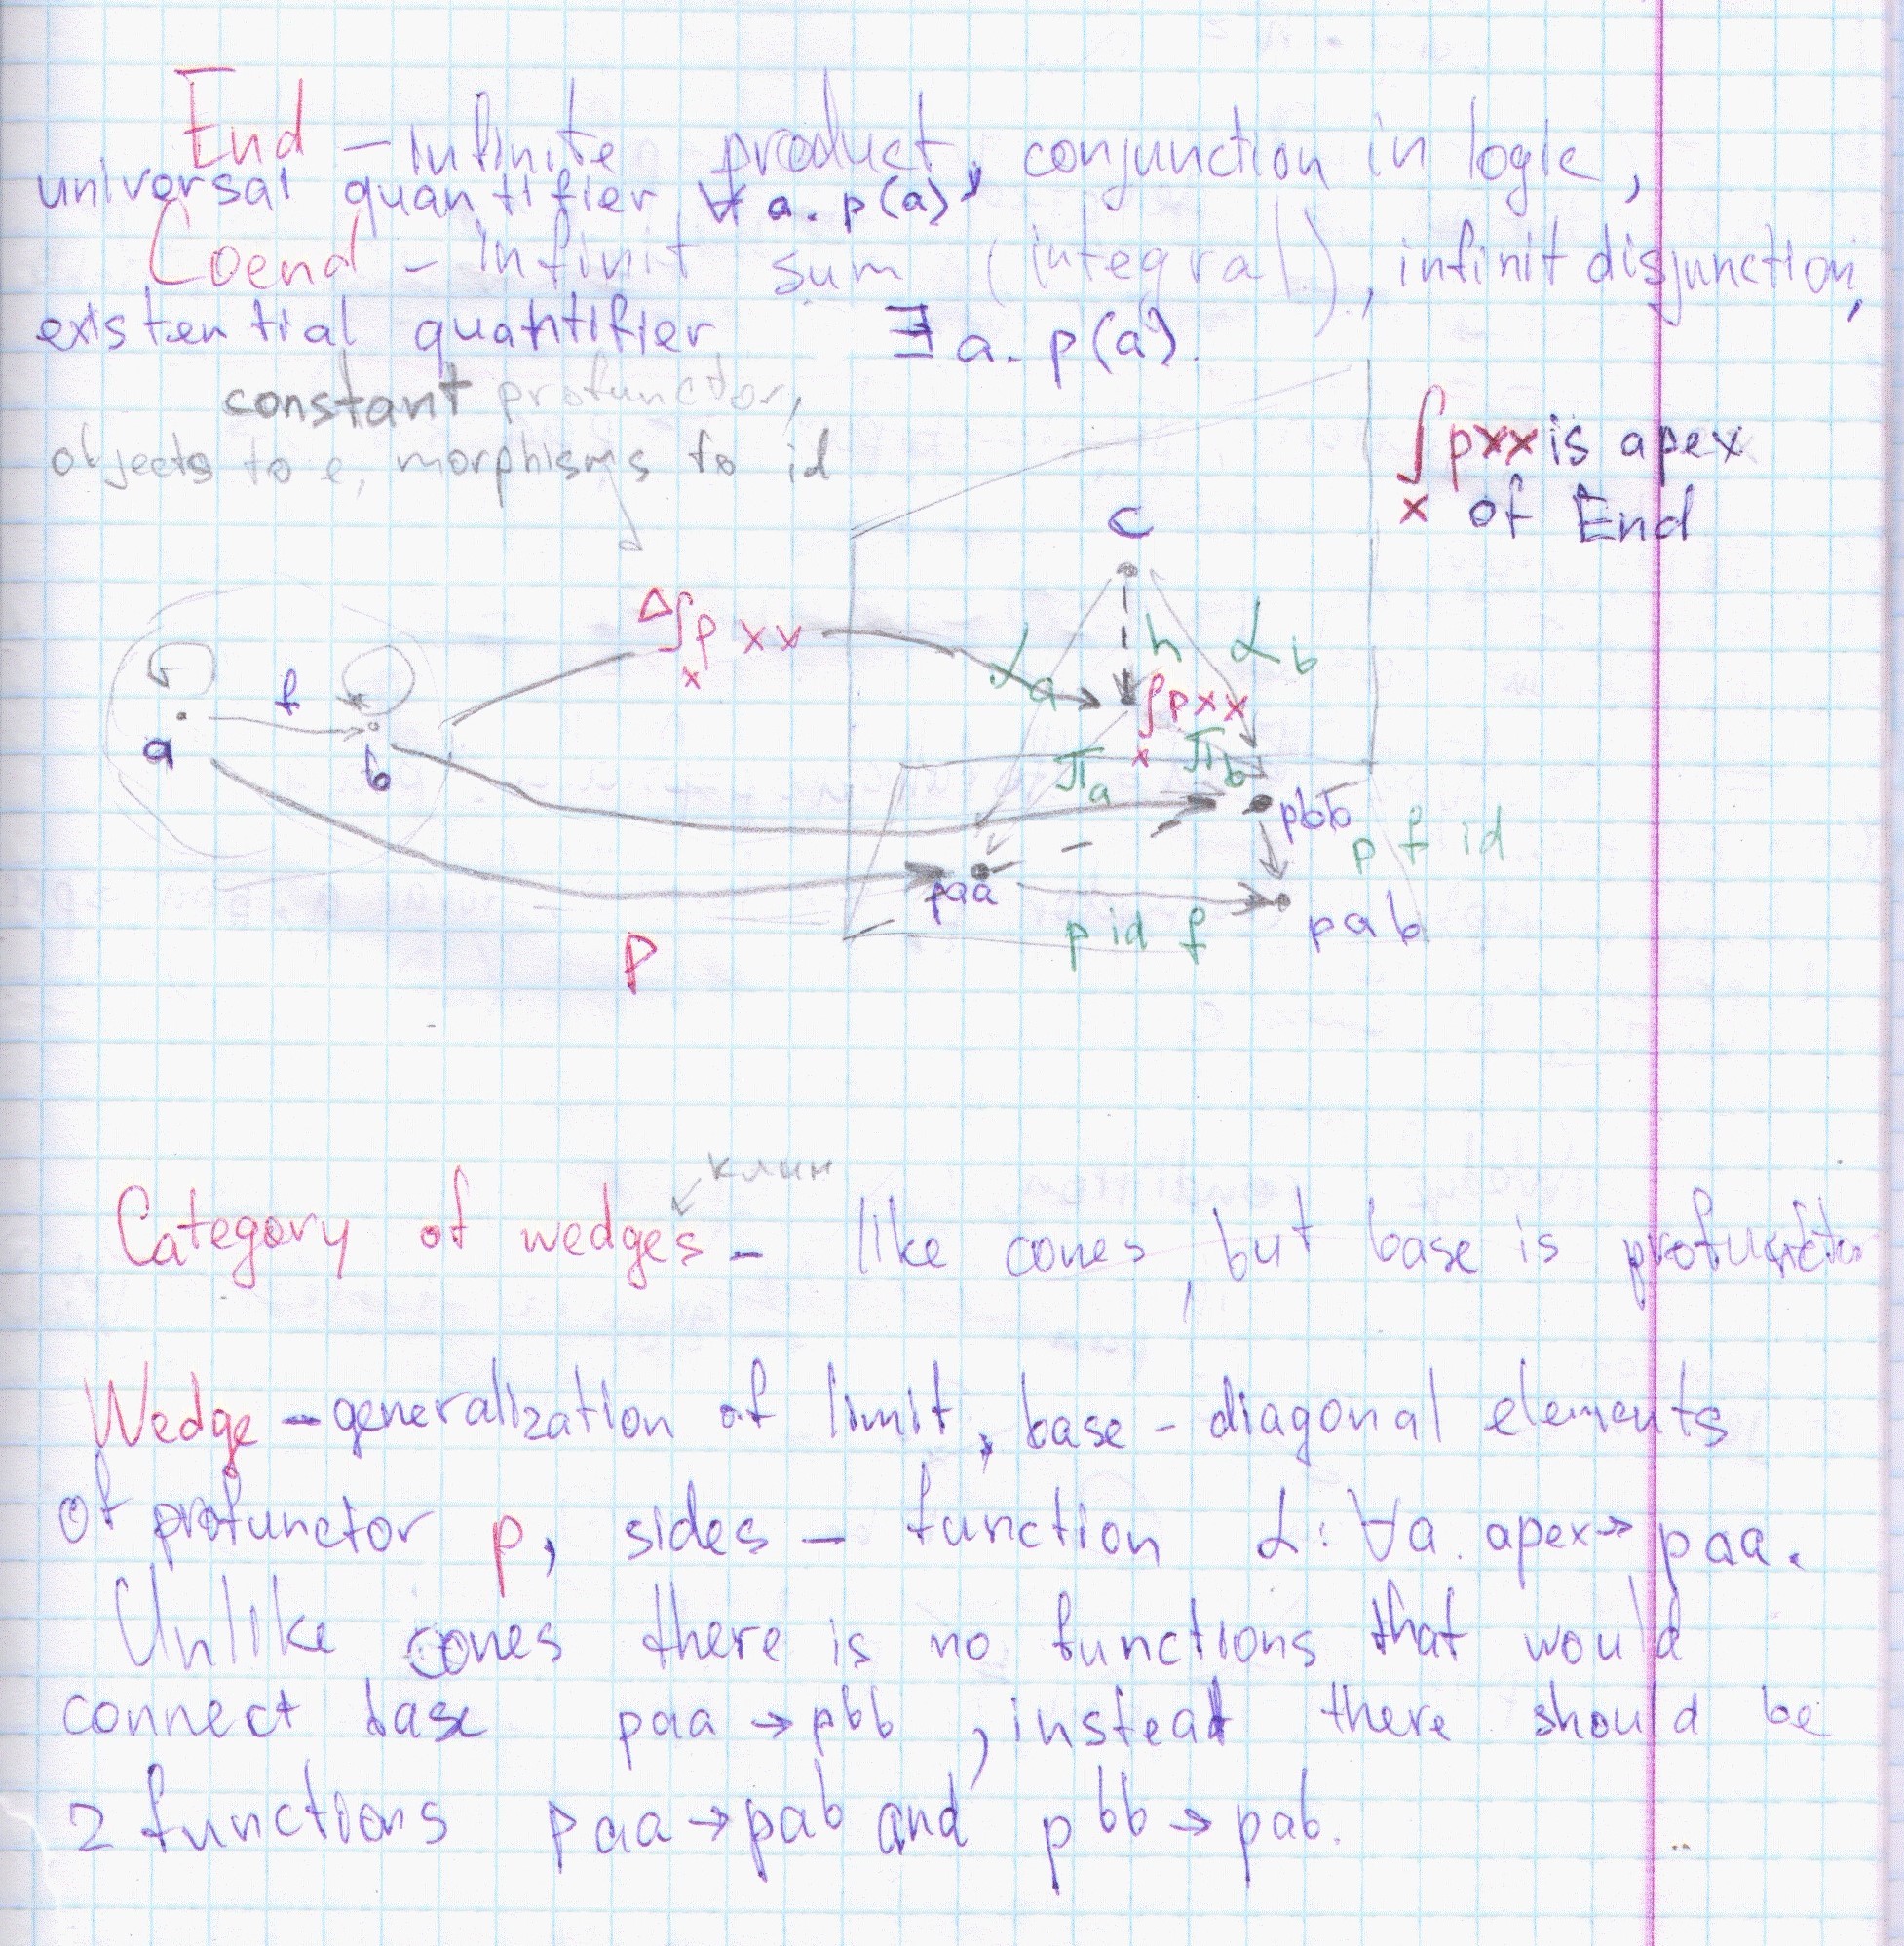 End – infinite product, conjunction in logic,
universal quantifier ∀ a. p(a),
Coend – infinit sum (integral), infinit disjunction,
existential quantifier ∃ a. p(a).
constant profunctor,
objects to c, morphisms to id
∫ pxx is apex
x of End
c
Δ∫ p xx
x
αa h αb
∫pxx
x
f
a b
πa πb
pbb
p f id
paa
p id f pab
P
клин
Category of wedges – like cones, but base is profunctor
Wedge – generalization of limit, base – diagonal elements
of profunctor p, sides – function α: ∀a. apex → paa.
Unlike cones there is no functions that would
connect base paa → pbb, instead there should be
2 functions paa → pab and pbb → pab.